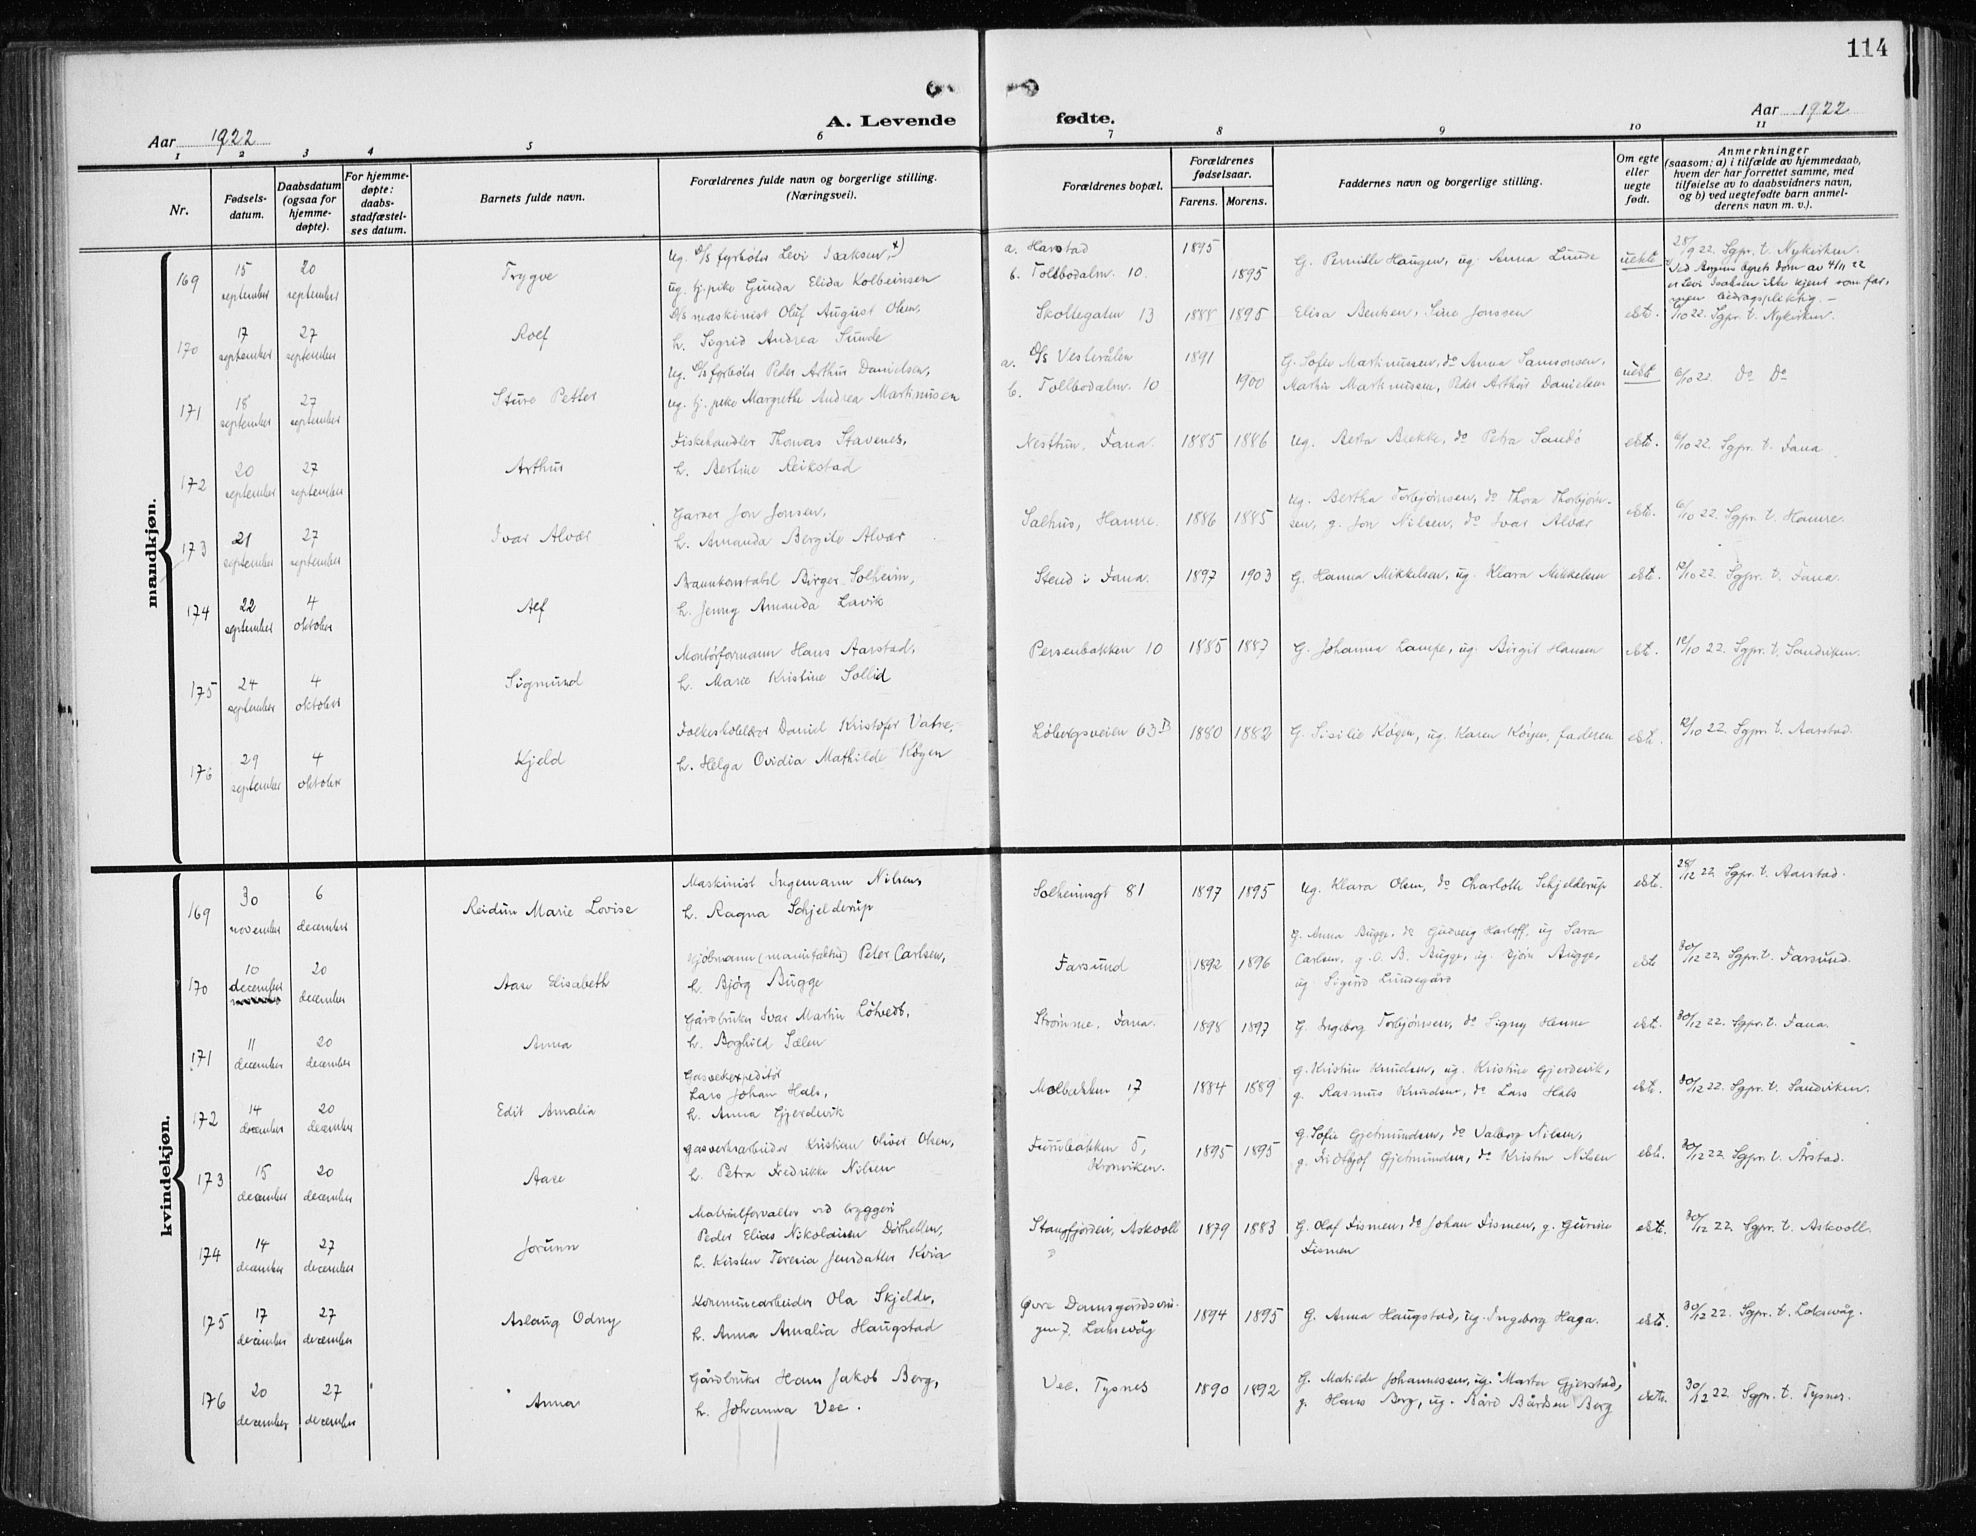 114
Aar 1922
A. Levende
fødte.
Aar 1922
1 2 3 4 5 6 7 8 9 10 11
Nr.
Fødsels-
datum.
Daabsdatum
(ogsaa for
hjemme-
døpte).
For hjemme-
døpte:
daabs-
stadfæstel-
ses datum.
Barnets fulde navn.
Forældrenes fulde navn og borgerlige stilling.
(Næringsvei).
Forældrenes bopæl.
Forældrenes
fødselsaar.
Farens. Morens.
Faddernes navn og borgerlige stilling.
Om egte
eller
uegte
født.
Anmerkninger
(saasom: a) i tilfælde av hjemmedaab,
hvem der har forrettet samme, med
tilføielse av to daabsvidners navn,
og b) ved uegtefødte barn anmel-
derens navn m. v.).
mandkjøn.
169 15 september 20 september Trygve
ug. D/s fyrbøter Levi Isaksen, x)
ug. tj. pike Gunda Elida Kolbeinsen
a. Harstad 1895
b. Tollbodalm. 10. 1895
G. Pernille Haugen, ug. Anna Lunde
uekte
28/9 22. Sgpr. t. Nykirken.
x) Ved Bergens byrets dom av 4/11 22
er Levi Isaksen ikke kjent som far,
men bidragspliktig. –
170 17 september 27 september Rolf
D/s maskinist Oluf August Olsen,
h. Sigrid Andrea Sunde
Skottegaten 13 1888 1895
Elisa Bentsen, Sine Jonssen
ekte.
6/10 22. Sgpr. t. Nykirken.
171 18 september 27 september Sture Petter
ug. D/s fyrbøter Peder Arthur Danielsen,
ug. tj. pike Margrethe Andrea Martinusen
a. D/s Vesterålen 1891
b. Tollbodalm. 10 1900
G. Sofie Martinussen, do Anna Samsonsen,
Martin Martinussen, Peder Arthur Danielsen
uekte
6/10 22. Do Do
172 20 september 27 september Arthur
Fiskehandler Thomas Stavenes,
h. Bertine Reikstad
Nesttun, Fana. 1885 1886
ug. Berta Brekke, do Petra Sandø
ekte.
6/10 22. Sgpr. t. Fana
173 21 september 27 september Ivar Alvær
Garver Jon Jonsen,
h. Amanda Bergite Alvær
Salhus, Hamre. 1886 1885
ug. Bertha Torbjørnsen, do Thora Thorbjørn-
sen, g. Jon Nilsen, do Ivar Alvær
ekte.
6/10 22. Sgpr. t. Hamre.
174 22 september 4 oktober Alf
Brannkonstabel Birger Solheim,
h. Jenny Amanda Lavik
Stend i Fana. 1897 1903
G. Hanna Mikkelsen, ug. Klara Mikkelsen
ekte.
12/10 22. Sgpr. t. Fana.
175 24 september 4 oktober Sigmund
Montørformann Hans Aarstad,
h. Marie Kristine Sollid
Persenbakken 10 1885 1887
G. Johanna Lampe, ug. Birgit Hansen
ekte.
12/10 22. Sgpr. t. Sandviken.
176 29 september 4 oktober Kjeld
Folkeskolelærer Daniel Kristofer Vatne,
h. Helga Ovidia Mathilde Køgen
Løbergsveien 63 B 1880 1882
G. Sisilie Køgen, ug. Karen Køgen, faderen
ekte.
12/10 22. Sgpr. t. Aarstad.
kvindekjøn.
169 30 november 6 december Reidun Marie Lovise
Maskinist Ingemann Nilsen,
h. Ragna Schjelderup
Solheimsgt 81 1897 1895
ug. Klara Olsen, do Charlotte Schjelderup
ekte.
28/12 22. Sgpr. t. Aarstad.
170 10 december 20 december Aase Elisabeth
Kjøbmann (manufaktur) Peter Carlsen,
h. Bjørg Bugge
Farsund 1892 1896
G. Anna Bugge, do Gudveig Harloff, ug Sara
Carlsen, g. O. B. Bugge, ug. Bjørn Bugge,
ug Sigurd Lundegård
ekte
30/12 22. Sgpr. t. Farsund.
171 11 december 20 december Anna
Gårdbruker Ivar Martin Løtvedt,
h. Borghild Sælen
Strømme, Fana. 1898 1897
G. Ingeborg Torbjørnsen, do Signy Henne
ekte.
30/12 22. Sgpr. t. Fana.
172 14 december 20 december Edit Amalia
Gassekspeditør
Lars Johan Hals,
h. Anna Gjerdevik
Molbakken 17 1884 1889
g. Kristine Knudsen, ug. Kristine Gjerdevik,
g. Rasmus Knudsen, do Lars Hals
ekte.
30/12 22. Sgpr. t. Sandviken.
173 15 december 20 december Aase
Gassverksarbeider Kristian Oliver Olsen,
h. Petra Fredrikke Nilsen
Furubakken 5,
Kronviken. 1895 1895
G. Sofie Gjetmundsen, do Valborg Nilsen,
g. Fridtjof Gjetmundsen, do Kristen Nilsen
ekte.
30/12 22. Sgpr. t. Årstad.
174 14 december 27 december Jorunn
Materialforvalter ved bryggeri
Peder Elias Nikolaisen Dørhellen,
h. Kirsten Teresia Jensdatter Kvia
Stangfjorden, Askvoll 1879 1883
G. Olaf Fismen, do Johan Fismen, g. Gurine
Fismen
ekte.
30/12 22. Sgpr. t. Askvoll.
175 17 december 27 december Aslaug Odny
Kommunearbeider Ola Skjelde,
h. Anna Amalia Haugstad
Øvre Damsgårdsvei-
gen 7, Laksevåg 1894 1895
G. Anna Haugstad, ug. Ingeborg Haga.
ekte.
30/12 22. Sgpr. t. Laksevåg.
176 20 december 27 december Anna
Gårdbruker Hans Jakob Berg,
h. Johanna Vee.
Vee. Tysnes 1890 1892
G. Matilde Johannessen, ug. Marta Gjerstad,
g. Hans Berg, ug. Bård Bårdsen Berg
ekte.
30/12 22. Sgpr. t. Tysnes.